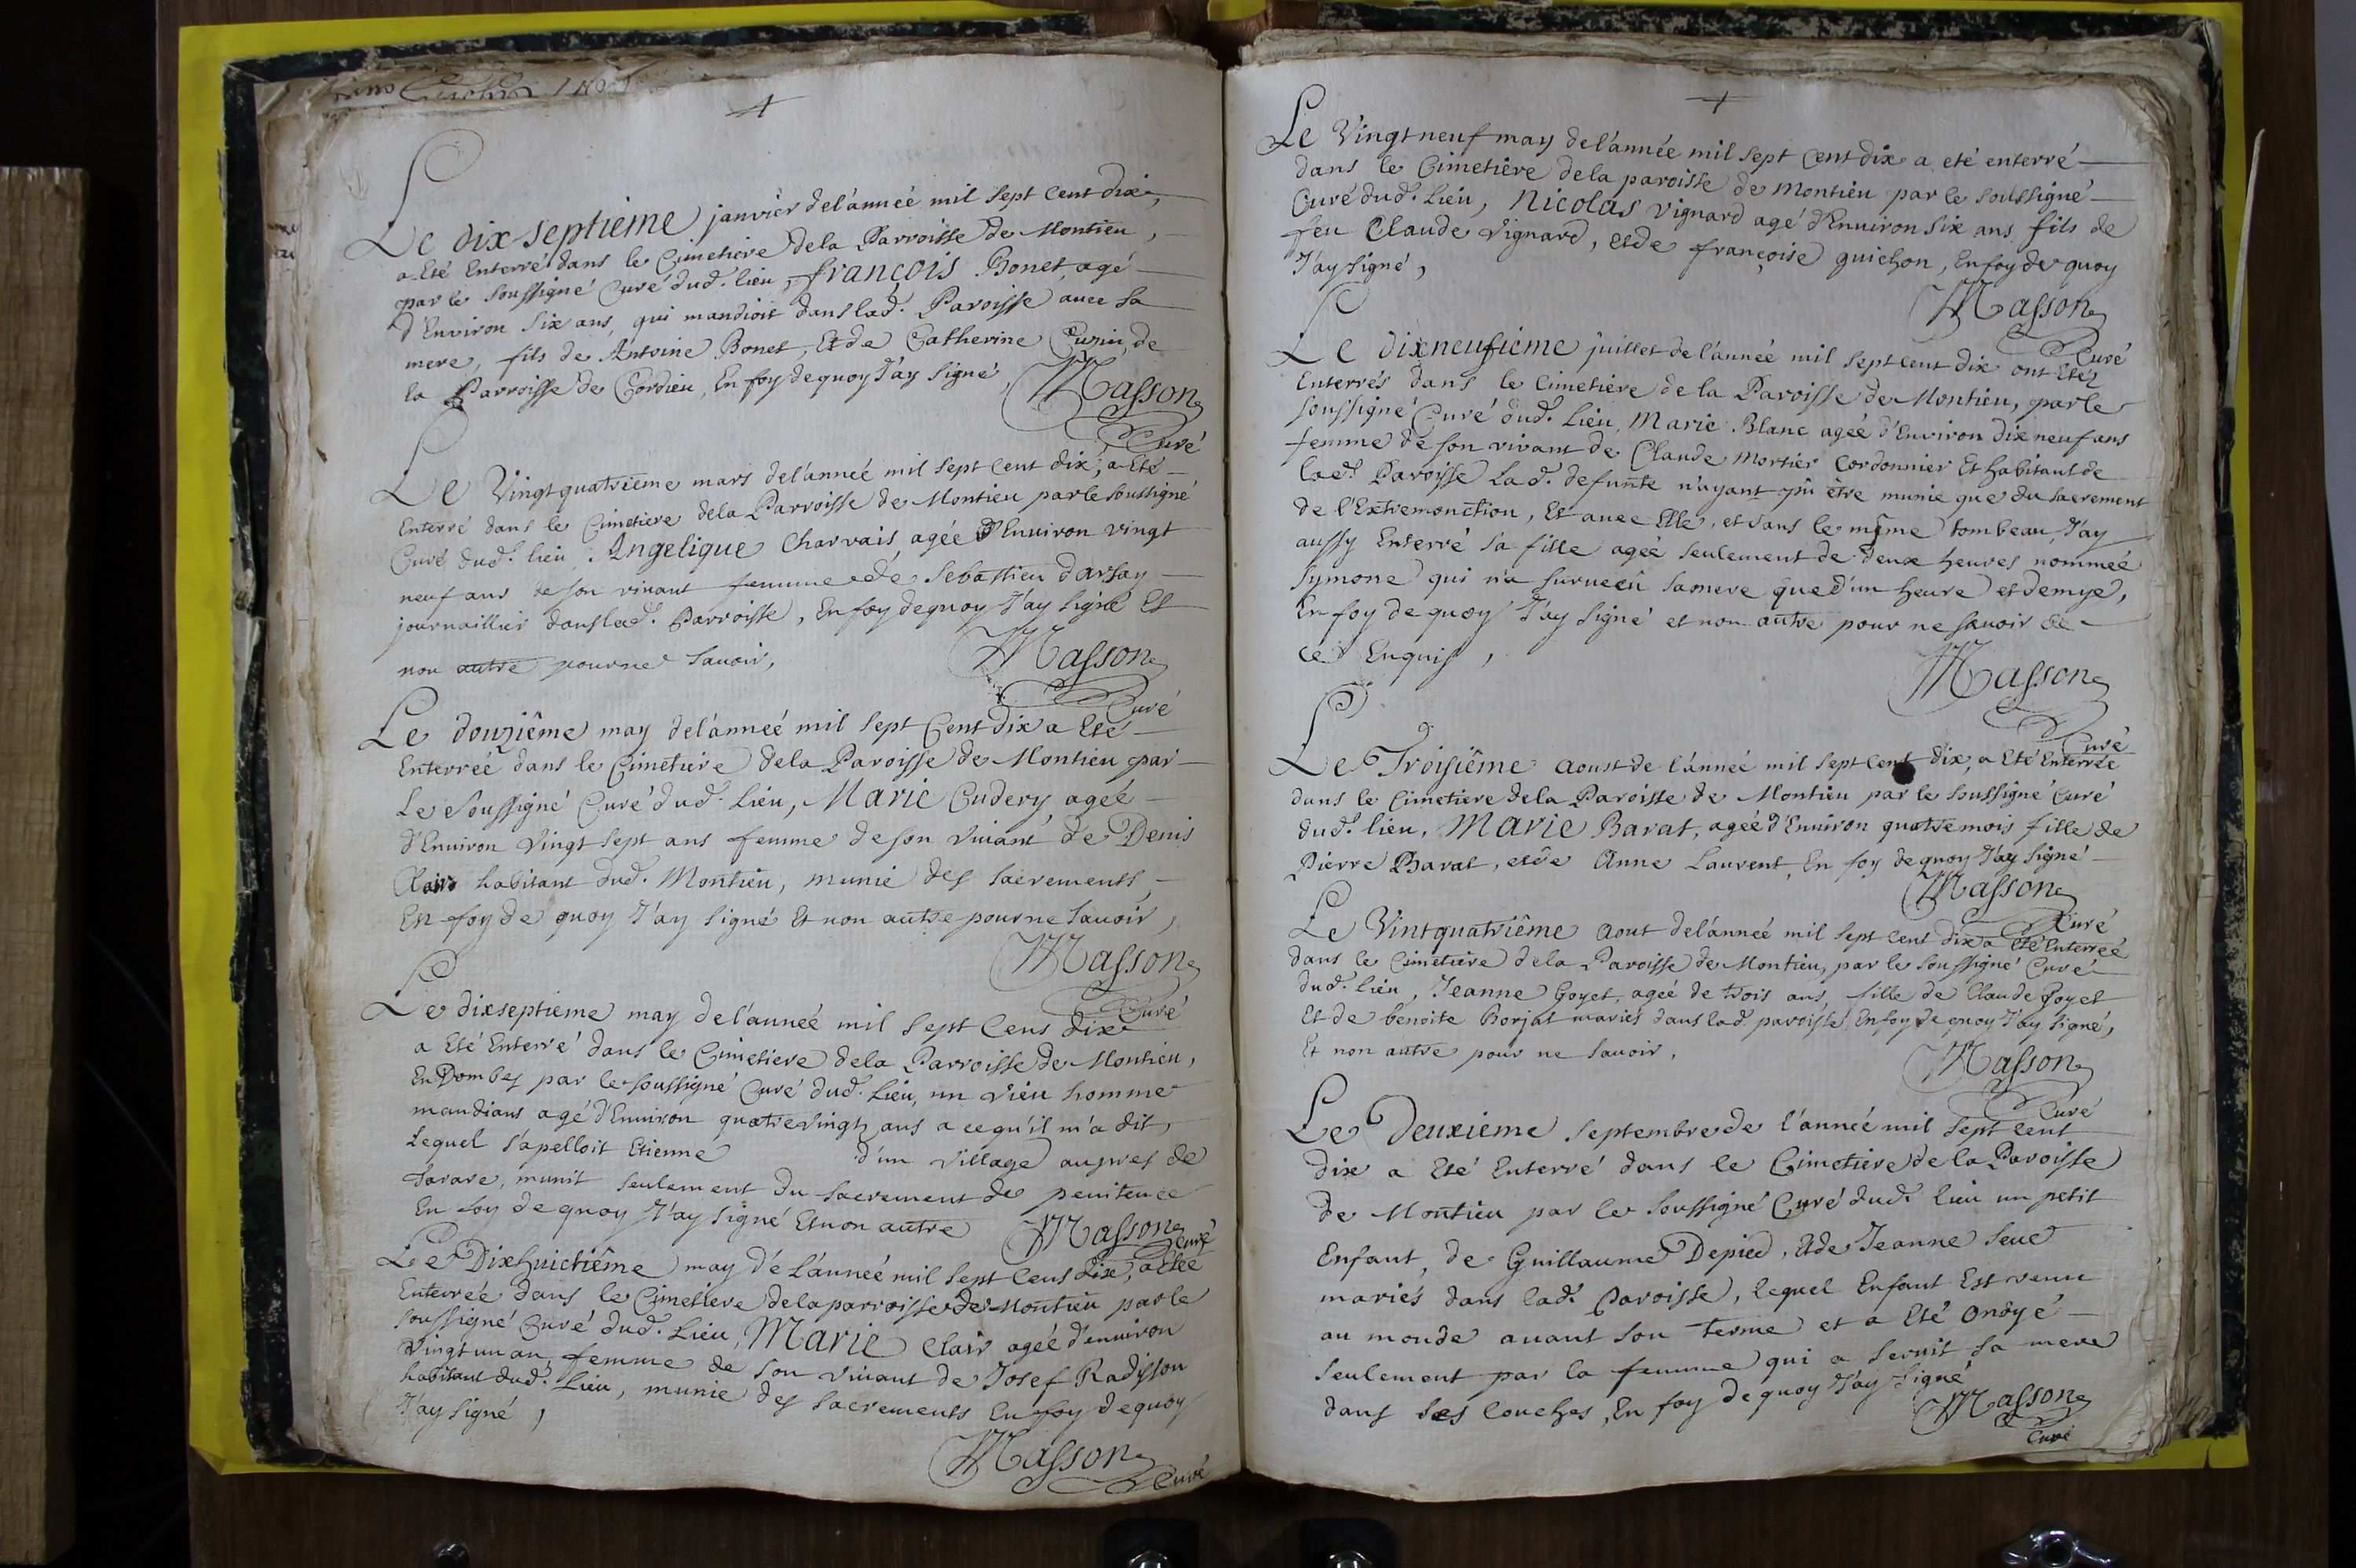 Le dix septieme janvier de l'année mil sept cent dix,
a Eté Enterré dans le Cimetiere de la Parroisse de Montieu,
par le soussigné Curé dud. lieu, françois Bonet, agé
d'Environ six ans, qui mandioit dans lad. Paroisse avec sa
mere, fils de Antoine Bonet, Et de Catherine de
la Parroisse de Cordieu, En foy de quoy J'ay signé,
Masson
Curé
Le Vingt quatrieme mars de l'anneé mil sept cent dix, a Eté
Enterré dans le Cimetiere de la Parroisse de Montieu par le soussigné
Curé dud. lieu, Angelique Charvais, agée d'Environ vingt
neuf ans de son vivant femme de Sebastien darsay
journaillier dans lad. Parroisse, En foy de quoy J'ay signé Et
non autre pour ne savoir,
Masson
Curé
Le douziême may de l'anneé mil sept Cent dix a Eté
Enterreé dans le Cimetiere de la Paroisse de Montieu par
Le Soussigné Curé dud. Lieu, Marie Cudery, ageé
d'Environ Vingt sept ans femme de son vivant de Denis
habitant dud. Montieu, munie des sacrements,
En foy de quoy J'ay signé Et non autre pour ne savoir,
Masson
Curé
Le dixseptieme may de l'anneé mil sept Cens dix
a Eté Enterré dans le Cimetiere de la Parroisse de Montieu,
En Dombes par le soussigné Curé dud. Lieu, un vieu homme
mandians agé d'Environ quatre vingt ans a ce qu'il m'a dit,
Lequel s'apelloit Etienne d'un village aupres de
Tarare, munit seulement du sacrement de penitence
En foy de quoy J'ay signé Et non autre
Masson
Curé
Le Dixhuictiême may dé L'anneé mil sept Cens dix, a Eté
Enterrée dans le Cimetiere de la parroisse de Montieu par le
soussigné Curé dud. Lieu, Marie Clair ageé d'environ
vingt un an, femme de son vivant de Josef Radisson
habitant dud. Lieu, munie des sacrements En foy de quoy
J'ay signé,
Masson
Curé
Le Vingt neuf may de l'année mil sept Cent dix a eté enterré
dans le Cimetiére de la paroisse de Montieu par le soussigné
Curé dud. Lieu, Nicolas Vignard agé d'Environ six ans fils de
feu Claude Vignard, et de françoise guichon, En foy de quoy
J'ay signé,
Masson
Curé
Le dixneufieme juillet de l'année mil sept cent dix ont Etéz
Enterrés dans le Cimetiére de la Paroisse de Montieu, par le
soussigné Curé dud. Lieu, Marie Blanc ageé d'Environ dix neuf ans
femme de son vivant de Claude Mortier Cordonnier Et habitant de
lad. Paroisse Lad. defunte n'ayant pû être munie que du sacrement
de l'Extremonction, Et avec Elle, et dans le mème tombeau, J'ay
aussy Enterré sa fille ageé seulement de deux heures nommeé
Symone qui n'a survecû sa mere que d'un heure et demye,
En foy de quoy J'ay signé et non autre pour ne savoir de
ce Enquis,
Masson
Curé
Le Troisiême Aoust de l'anneé mil sept cent dix, a Eté Enterrée
dans le Cimetiere de la Paroisse de Montieu par le soussigné Curé
dud. lieu, Marie Barat, ageé d'Environ quatre mois fille de
Pierre Barat, et de Anne Laurent, En foy de quoy J'ay signé
Masson
Curé
Le Vint quatriême Aout de l'anneé mil sept cent dix a Eté Enterreé
dans le Cimetiere de la Paroisse de Montieu, par le soussigné Curé
dud. lieu, Jeanne Goyet, ageé de trois ans, fille de Claude Goyet
Et de benoite Borjat mariés dans lad. paroisse, En foy de quoy J'ay signé,
Et non autre pour ne savoir,
Masson
Curé
Le Deuxieme Septembre de l'anneé mil sept cent
dix a Eté Enterré dans le Cimetiere de la Paroisse
de Montieu par le soussigné Curé dud. lieu un petit
Enfant, de Guillaume Depied, Et de Jeanne Seue
mariés dans lad. Paroisse, lequel Enfant Est venu
au monde avant son terme et a Eté ondyé
seulement par la femme qui a servit sa mere
dans ses couches, En foy de quoy J'ay signé
Masson
Curé